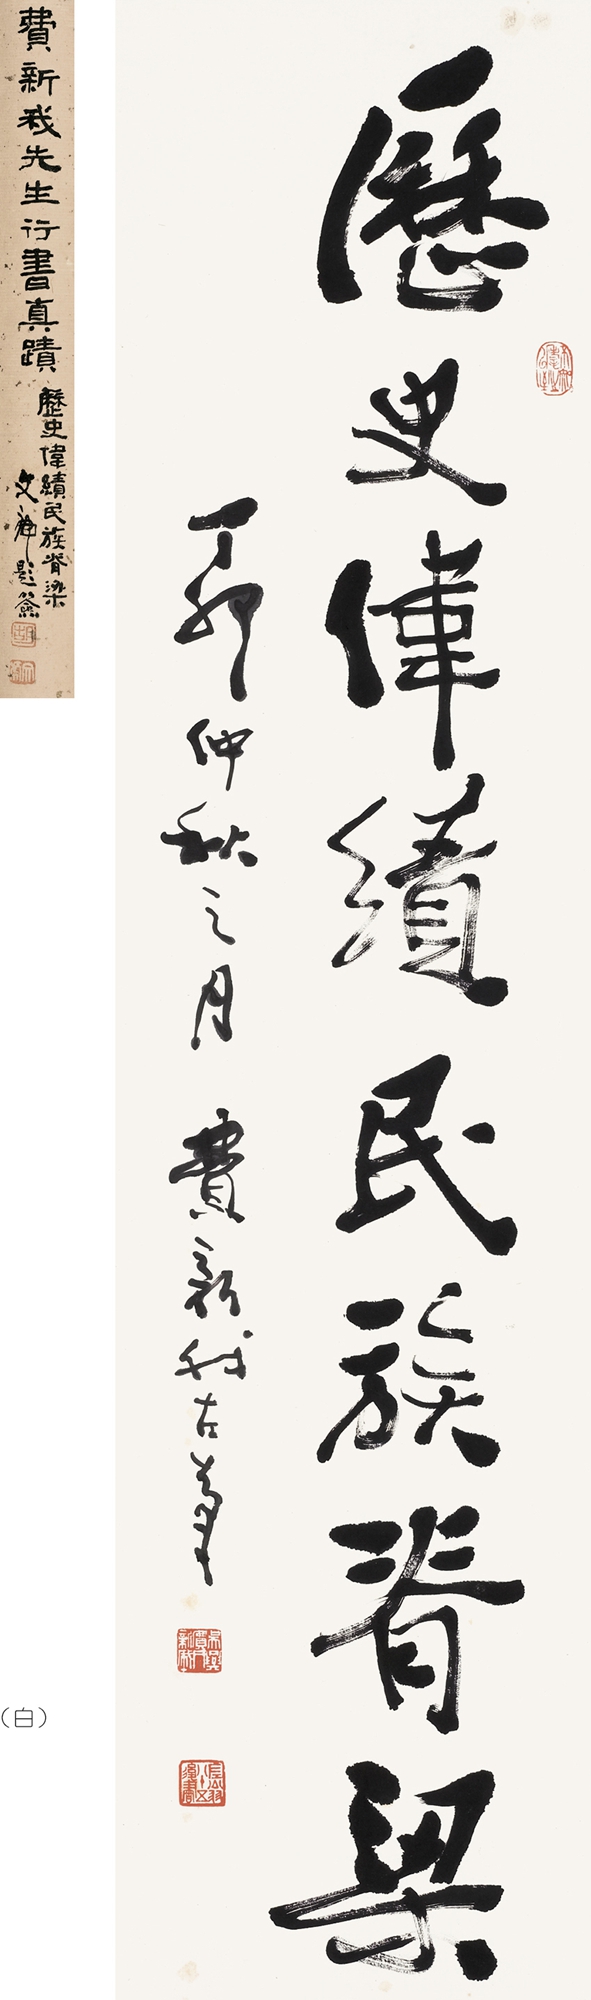 歷史偉績民族脊梁
丁卯仲秋之月 費新我左筆
費新我先生行書真蹟
歷史偉績民族脊梁
題簽
（白）